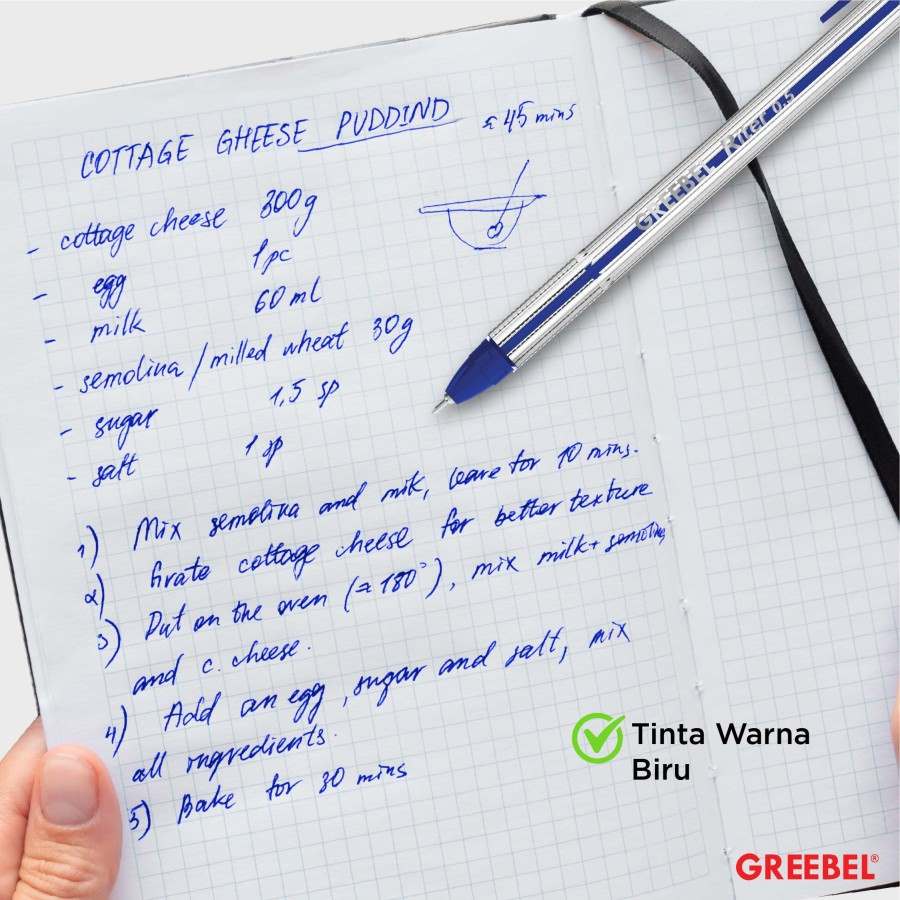 COTTAGE GHEESE PUDDIND ≈ 45 mins
- cottage cheese 300g
- egg 1 pc
- milk 60 ml
- semolina / milled wheat 30g
- sugar 1,5 sp
- salt 1 sp
1) Mix semolina and milk, leave for 10 mins.
2) Grate cottage cheese for better texture
3) Put on the oven (≈ 180°), mix milk + semolina
and c. cheese.
4) Add an egg, sugar and salt, mix
all ingredients.
5) Bake for 30 mins
GREEBEL Riter 0.5
Tinta Warna
Biru
GREEBEL®